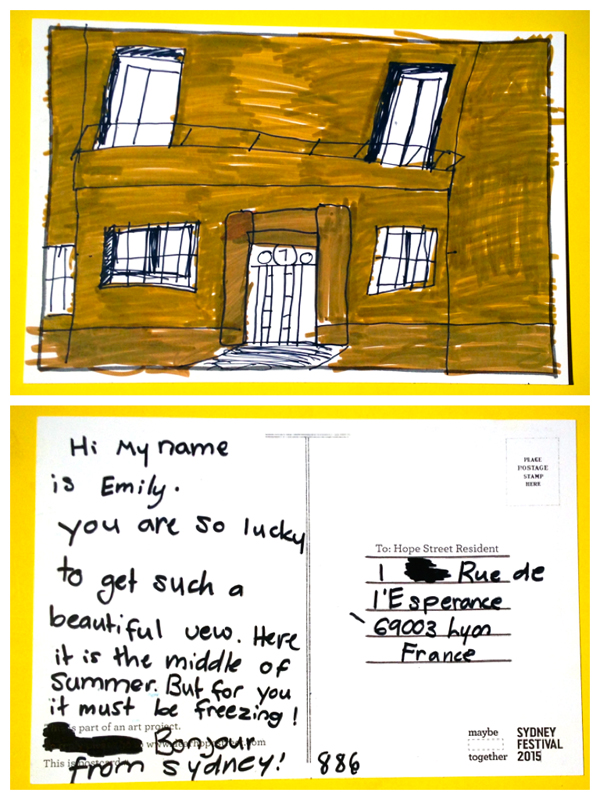 7
Hi My name
is Emily.
you are so lucky
to get such a
beautiful vew. Here
it is the middle of
Summer. But for you
it must be freezing!
part of an art project.
This is postcard
from sydney! 886
PLACE
POSTAGE
STAMP
HERE
To: Hope Street Resident
1 Rue de
l'Esperance
69003 Lyon
France
maybe
together
SYDNEY
FESTIVAL
2015